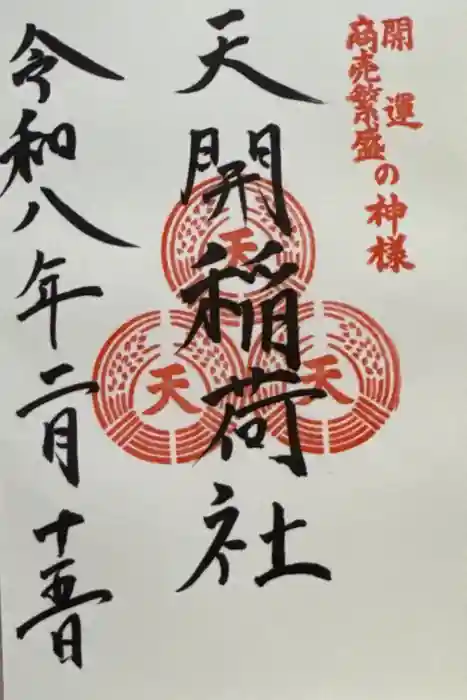 開運
商売繁盛
の神様
天開稲荷社
天
天
天
令和八年二月十五日